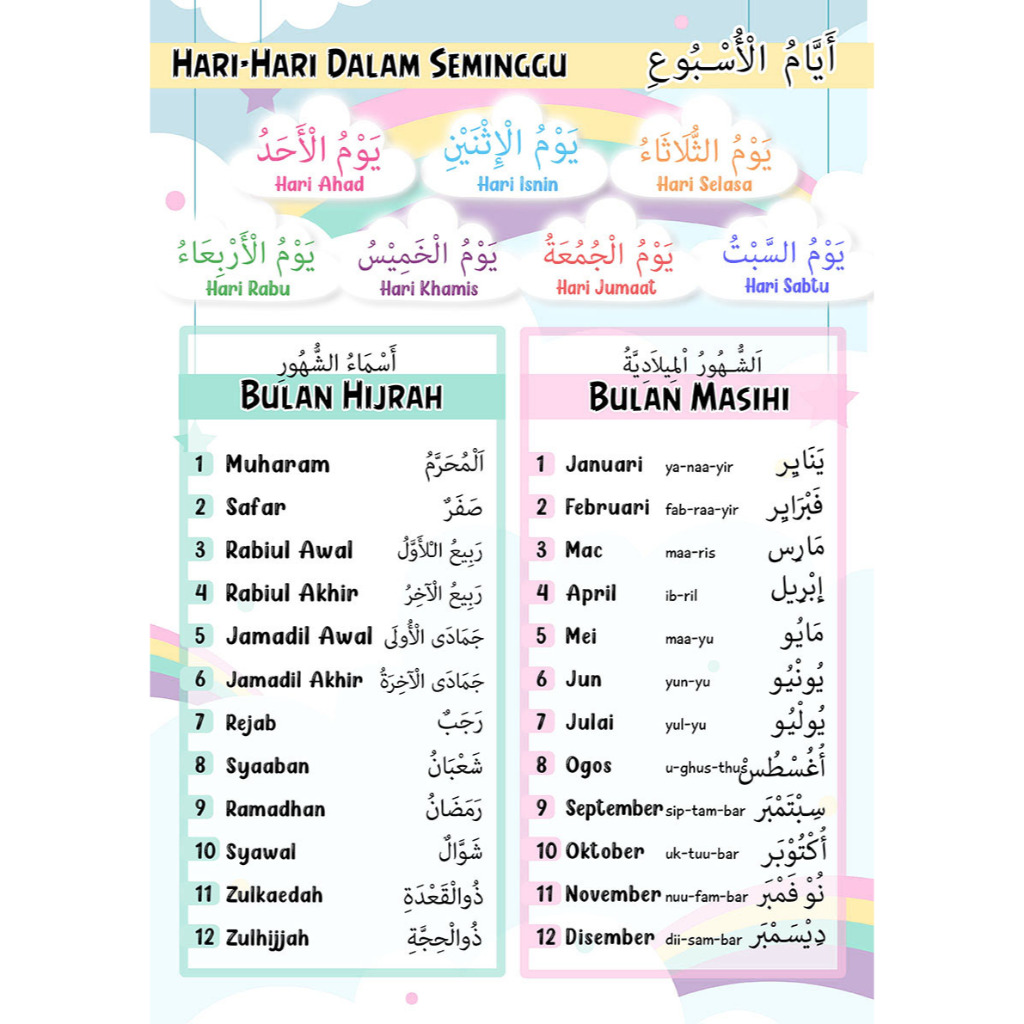 HARI-HARI DALAM SEMINGGU أَيَّامُ الْأُسْبُوعِ
يَوْمُ الْأَحَدُ
Hari Ahad
يَوْمُ الْإِثْنَيْنِ
Hari Isnin
يَوْمُ الثُّلَاثَاءُ
Hari Selasa
يَوْمُ الْأَرْبِعَاءُ
Hari Rabu
يَوْمُ الْخَمِيْسُ
Hari Khamis
يَوْمُ الْجُمُعَةُ
Hari Jumaat
يَوْمُ السَّبْتُ
Hari Sabtu
أَسْمَاءُ الشُّهُورِ
BULAN HIJRAH
1 Muharam اَلْمُحَرَّمُ
2 Safar صَفَرٌ
3 Rabiul Awal رَبِيعُ الْلأَوَّلُ
4 Rabiul Akhir رَبِيعُ الْآخِرُ
5 Jamadil Awal جَمَادَى الْأُولَى
6 Jamadil Akhir جَمَادَى الْآخِرَةُ
7 Rejab رَجَبٌ
8 Syaaban شَعْبَانُ
9 Ramadhan رَمَضَانُ
10 Syawal شَوَّالٌ
11 Zulkaedah ذُوالْقَعْدَةِ
12 Zulhijjah ذُوالْحِجَّةِ
اَلشُّهُورُ اْلمِيلَادِيَّةُ
BULAN MASIHI
1 Januari ya-naa-yir يَنَايِر
2 Februari fab-raa-yir فَبْرَايِر
3 Mac maa-ris مَارِس
4 April ib-ril إِبْرِيل
5 Mei maa-yu مَايُو
6 Jun yun-yu يُونْيُو
7 Julai yul-yu يُولْيُو
8 Ogos u-ghus-thus أُغُسْطُسْ
9 September sip-tam-bar سِبْتَمْبَر
10 Oktober uk-tuu-bar أُكْتُوْبَر
11 November nuu-fam-bar نُوْفَمْبَر
12 Disember dii-sam-bar دِيْسَمْبَر